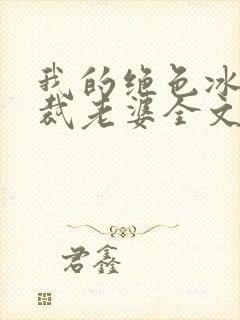 我的绝色冰
裁老婆全文
君鑫